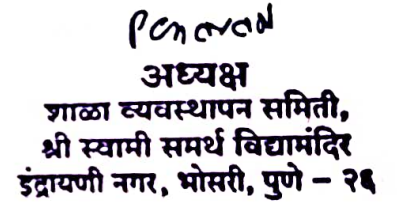 अध्यक्ष
शाळा व्यवस्थापन समिती,
श्री स्वामी समर्थ विद्यामंदिर
इंद्रायणी नगर, भोसरी, पुणे - २६